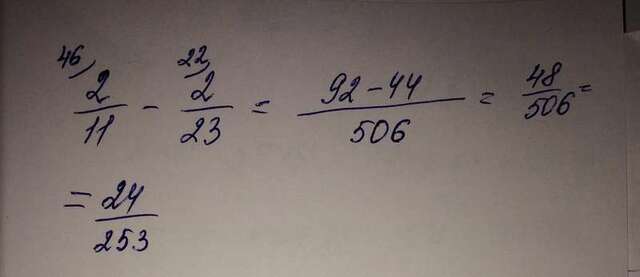 46) 22)
2/11 - 2/23 = 92-44/506 = 48/506 =
= 24/253